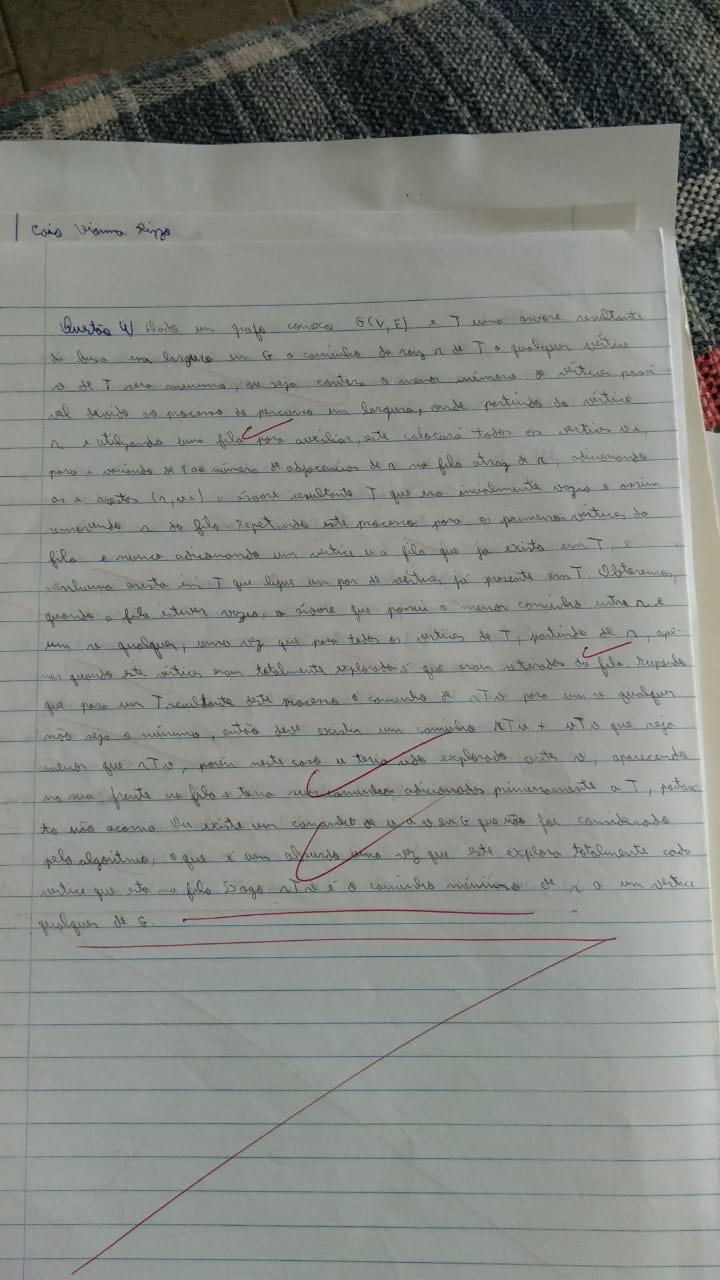 Caio Vianna Rizzo
Questão 4) Dado um grafo conexo G(V,E) e T uma árvore resultante
da busca em largura em G o caminho da raiz r de T a qualquer vértice
v de T será mínimo, ou seja conterá o menor número de vértices possí
vel devido ao processo de percurso em largura, onde partindo do vértice
r e utilizando uma fila para auxiliar, este colocará todos os vértices vi,
para i variando de 1 ao número de adjacencias de r na fila atraz de r, adicionando
as arestas (r, vi) a árvore resultante T que era vazia e assim
removendo r da fila. Repetindo este processo para os primeiros vértices da
fila e nunca adicionando um vértice u a fila que já exista em T, e
nenhuma aresta em T que ligue um par de vértices já presente em T. Obteremos,
quando a fila estiver vazia, a árvore que possui o menor caminho entre r e
um v qualquer, uma vez que para todos os vértices de T, partindo de r, ape-
nas quando este vértices eram totalmente explorados é que eram retirados da fila.
que para um T resultante deste processo o caminho de rTv para um v qualquer
não seja o mínimo, então deve existir um caminho rTu + uTv que seja
menor que rTv, porém neste caso u teria sido explorado ante v, aparecendo
na sua frente na fila e teria adicionados primeiramente a T, portan-
to não ocorre. Ou existe um de u a v em G que não foi considerado
pelo algoritmo, o que é um absurdo uma vez que este explora totalmente cada
vértice que esta na fila. Logo rTv é o caminho mínimo de r a um vértice
qualquer de G.